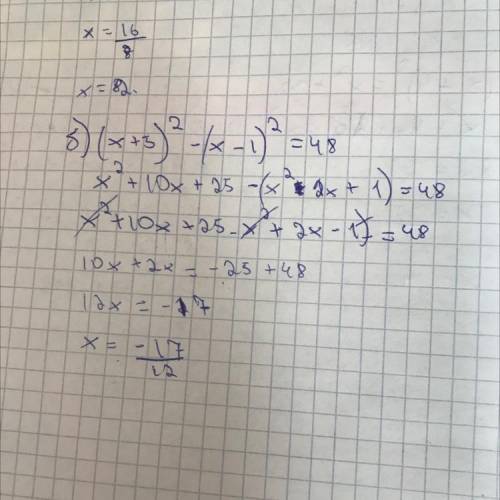 x = 16/8
x = 82.
б) (x+5)² - (x-1)² = 48
x² + 10x + 25 - (x² - 2x + 1) = 48
x² + 10x + 25 - x² + 2x - 1) = 48
10x + 2x = -25 + 48
12x = -17
x = -17/12